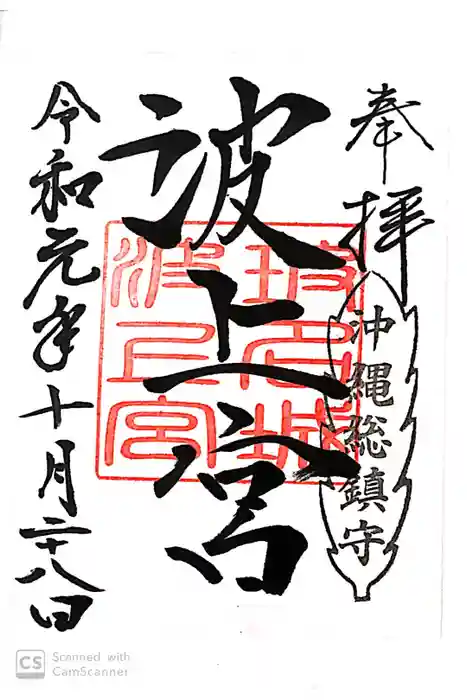 奉拝
沖縄総鎮守
波上宮
波上宮
令和元年十月二十八日
CS Scanned with
CamScanner